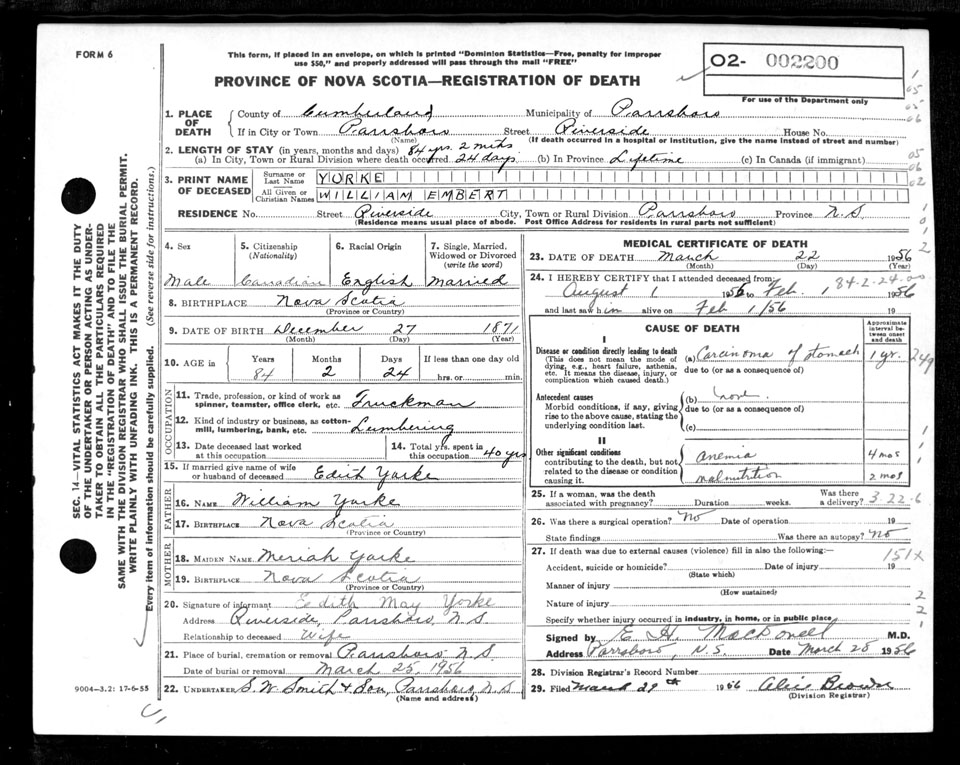 FORM 6
This form, if placed in an envelope, on which is printed "Dominion Statistics—Free, penalty for improper
use $50," and properly addressed will pass through the mail "FREE"
PROVINCE OF NOVA SCOTIA—REGISTRATION OF DEATH
O2- 002200
For use of the Department only
1. PLACE OF DEATH
County of Cumberland Municipality of Parrsboro
If in City or Town Parrsboro Street Riverside House No.
(Name) (If death occurred in a hospital or institution, give the name instead of street and number)
2. LENGTH OF STAY (in years, months and days) 84 yrs. 2 mths
(a) In City, Town or Rural Division where death occurred 24 days (b) In Province Lifetime (c) In Canada (if immigrant)
3. PRINT NAME OF DECEASED
Surname or Last Name YORKE
All Given or Christian Names WILLIAM EMBERT
RESIDENCE No. Street Riverside City, Town or Rural Division Parrsboro Province N.S.
(Residence means usual place of abode. Post Office Address for residents in rural parts not sufficient)
4. Sex
Male
5. Citizenship
(Nationality)
Canadian
6. Racial Origin
English
7. Single, Married,
Widowed or Divorced
(write the word)
Married
8. BIRTHPLACE Nova Scotia
(Province or Country)
9. DATE OF BIRTH December 27 1871
(Month) (Day) (Year)
10. AGE in
Years Months Days If less than one day old
84 2 24 hrs. or min.
OCCUPATION
11. Trade, profession, or kind of work as
spinner, teamster, office clerk, etc. Truckman
12. Kind of industry or business, as cotton-
mill, lumbering, bank, etc. Lumbering
13. Date deceased last worked
at this occupation
14. Total yrs. spent in
this occupation 40 yrs
15. If married give name of wife
or husband of deceased Edith Yorke
FATHER
16. NAME William Yorke
17. BIRTHPLACE Nova Scotia
(Province or Country)
MOTHER
18. MAIDEN NAME Meriah Yorke
19. BIRTHPLACE Nova Scotia
(Province or Country)
20. Signature of informant Edith May Yorke
Address Riverside, Parrsboro, N.S
Relationship to deceased Wife
21. Place of burial, cremation or removal Parrsboro N.S.
Date of burial or removal March 25, 1956
22. UNDERTAKER S. W. Smith & Son, Parrsboro, N.S
(Name and address)
MEDICAL CERTIFICATE OF DEATH
23. DATE OF DEATH March 22 1956
(Month) (Day) (Year)
24. I HEREBY CERTIFY that I attended deceased from
August 1 1955 to Feb. 1 1956
84-2-24
and last saw him alive on Feb 1/56 19
CAUSE OF DEATH
Approximate
interval be-
tween onset
and death
I
Disease or condition directly leading to death
(This does not mean the mode of
dying, e.g., heart failure, asthenia,
etc. It means the disease, injury, or
complication which caused death.)
(a) Carcinoma of stomach 1 yr.
due to (or as a consequence of)
249
Antecedent causes
Morbid conditions, if any, giving
rise to the above cause, stating the
underlying condition last.
(b) none
due to (or as a consequence of)
(c)
II
Other significant conditions
contributing to the death, but not
related to the disease or condition
causing it.
anemia 4 mos
malnutrition 2 mos
25. If a woman, was the death
associated with pregnancy? Duration weeks. Was there
a delivery? 3-22-6
26. Was there a surgical operation? No Date of operation 19
State findings Was there an autopsy? No
27. If death was due to external causes (violence) fill in also the following:—
151X
Accident, suicide or homicide? Date of injury 19
(State which)
Manner of injury
(How sustained)
Nature of injury
Specify whether injury occurred in industry, in home, or in public place
Signed by E H. MacDonell M.D.
Address Parrsboro, N.S. Date March 25 1956
28. Division Registrar's Record Number
29. Filed March 29th 1956 Alice Brown
(Division Registrar)
9004-3.2: 17-6-55
SEC. 14—VITAL STATISTICS ACT MAKES IT THE DUTY
OF THE UNDERTAKER OR PERSON ACTING AS UNDER-
TAKER TO OBTAIN ALL THE PARTICULARS REQUIRED
IN THE "REGISTRATION OF DEATH" AND TO FILE THE
SAME WITH THE DIVISION REGISTRAR WHO SHALL ISSUE THE BURIAL PERMIT.
WRITE PLAINLY WITH UNFADING INK. THIS IS A PERMANENT RECORD.
Every item of information should be carefully supplied. (See reverse side for instructions.)